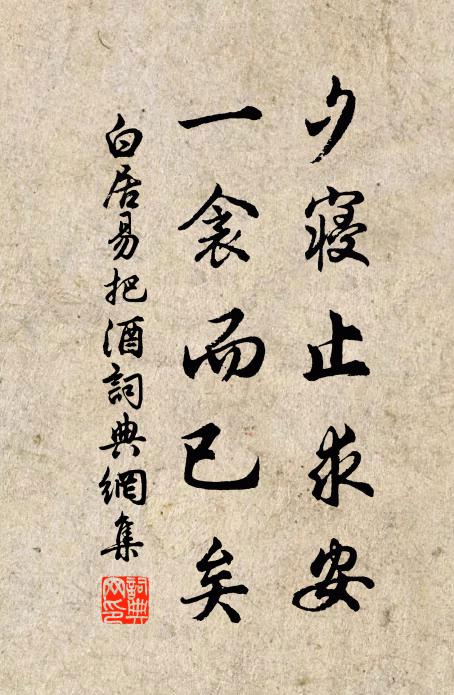 夕寢止求安
一衾而已矣
白居易把酒詞典網集
詞典網印